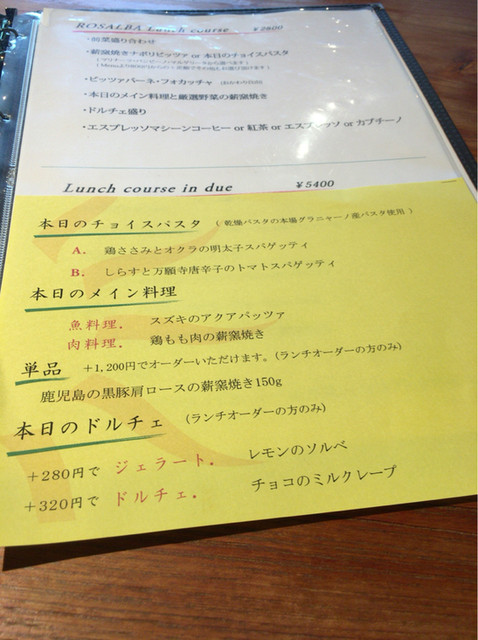 ROSALBA Lunch course ¥2800
・前菜盛り合わせ
・薪窯焼きナポリピッツァ or 本日のチョイスパスタ
・ピッツァパーネ・フォカッチャ (おかわり自由)
・本日のメイン料理と厳選野菜の薪窯焼き
・ドルチェ盛り
・エスプレッソマシーンコーヒー or 紅茶 or エスプレッソ or カプチーノ
Lunch course in due ¥5400
本日のチョイスパスタ ( 乾燥パスタの本場グラニャーノ産パスタ使用 )
A. 鶏ささみとオクラの明太子スパゲッティ
B. しらすと万願寺唐辛子のトマトスパゲッティ
本日のメイン料理
魚料理. スズキのアクアパッツァ
肉料理. 鶏もも肉の薪窯焼き
単品 +1,200円でオーダーいただけます。(ランチオーダーの方のみ)
鹿児島の黒豚肩ロースの薪窯焼き150g
本日のドルチェ (ランチオーダーの方のみ)
+280円で ジェラート. レモンのソルベ
+320円で ドルチェ. チョコのミルクレープ